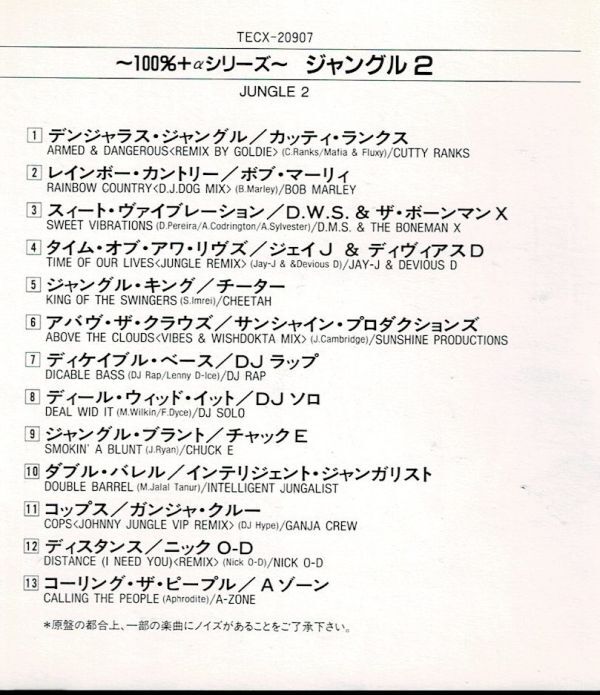 TECX-20907
〜100%+αシリーズ〜 ジャングル2
JUNGLE 2
1 デンジャラス・ジャングル／カッティ・ランクス
ARMED & DANGEROUS<REMIX BY GOLDIE> (C.Ranks/Mafia & Fluxy)/CUTTY RANKS
2 レインボー・カントリー／ボブ・マーリィ
RAINBOW COUNTRY<D.J.DOG MIX> (B.Marley)/BOB MARLEY
3 スィート・ヴァイブレーション／D.W.S. & ザ・ボーンマンX
SWEET VIBRATIONS (D.Pereira/A.Codrington/A.Sylvester)/D.M.S. & THE BONEMAN X
4 タイム・オブ・アワ・リヴズ／ジェイJ & ディヴィアスD
TIME OF OUR LIVES<JUNGLE REMIX> (Jay-J & &Devious D)/JAY-J & DEVIOUS D
5 ジャングル・キング／チーター
KING OF THE SWINGERS (S.Imrei)/CHEETAH
6 アバヴ・ザ・クラウズ／サンシャイン・プロダクションズ
ABOVE THE CLOUDS<VIBES & WISHDOKTA MIX> (J.Cambridge)/SUNSHINE PRODUCTIONS
7 ディケイブル・ベース／DJ ラップ
DICABLE BASS (DJ Rap/Lenny D-Ice)/DJ RAP
8 ディール・ウィッド・イット／DJ ソロ
DEAL WID IT (M.Wilkin/F.Dyce)/DJ SOLO
9 ジャングル・ブラント／チャックE
SMOKIN' A BLUNT (J.Ryan)/CHUCK E
10 ダブル・バレル／インテリジェント・ジャンガリスト
DOUBLE BARREL (M.Jalal Tanur)/INTELLIGENT JUNGALIST
11 コップス／ガンジャ・クルー
COPS<JOHNNY JUNGLE VIP REMIX> (DJ Hype)/GANJA CREW
12 ディスタンス／ニック O-D
DISTANCE (I NEED YOU)<REMIX> (Nick O-D)/NICK O-D
13 コーリング・ザ・ピープル／A ゾーン
CALLING THE PEOPLE (Aphrodite)/A-ZONE
*原盤の都合上、一部の楽曲にノイズがあることをご了承下さい。